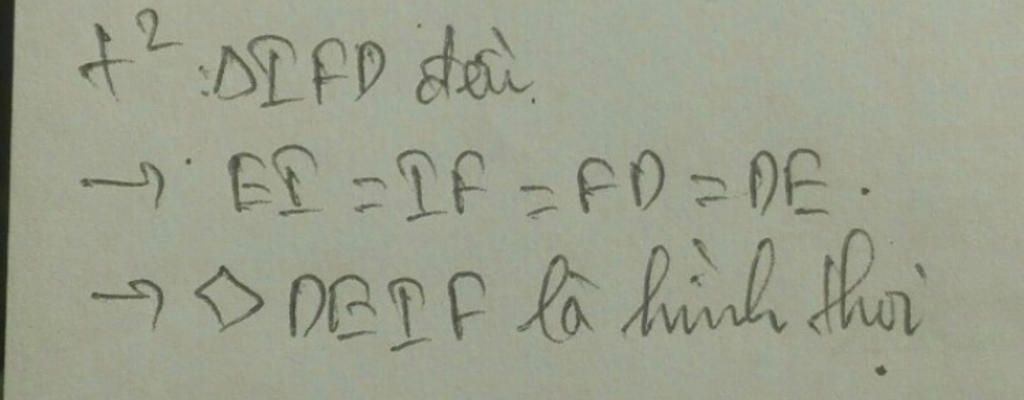 t² : ΔIFD đều.
→ EI = IF = FD = DE.
→ ◇ DEIF là hình thoi